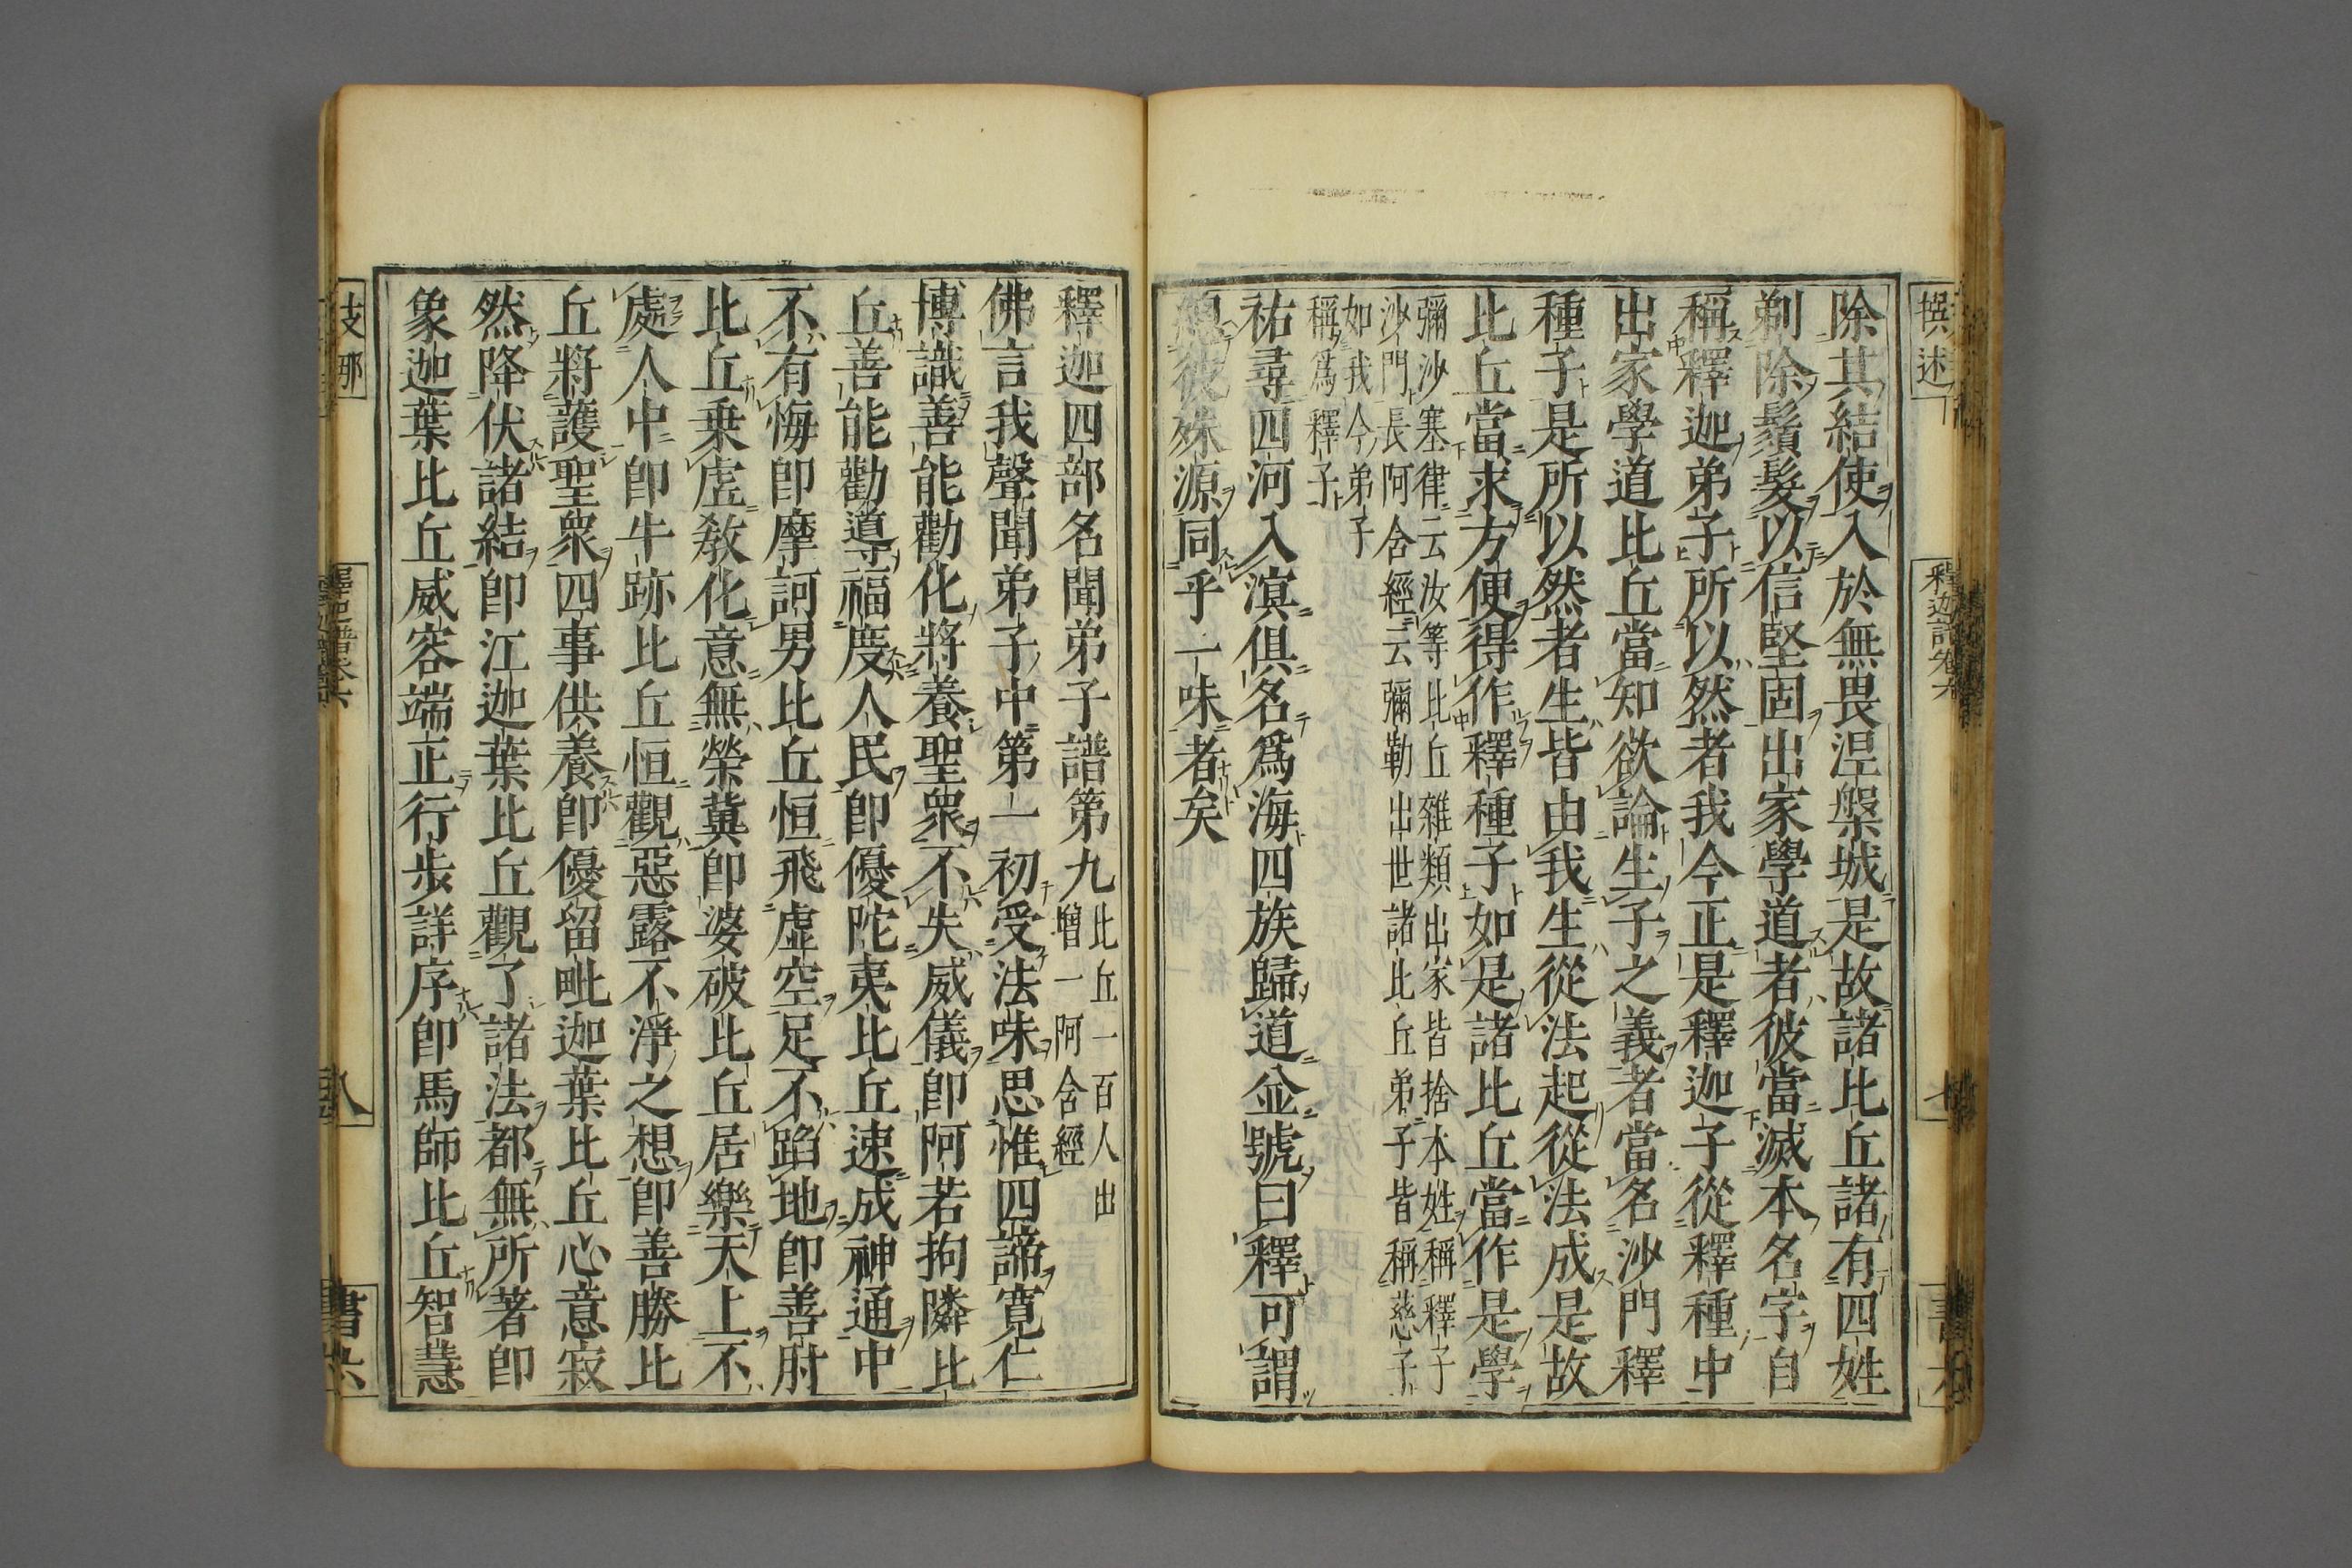 撰述
釋迦譜卷六
七
書六
除其結使入於無畏涅槃城是故諸比丘諸有四姓
剃除鬚髮以信堅固出家學道者彼當滅本名字自
稱釋迦弟子所以然者我今正是釋迦子從釋種中
出家學道比丘當知欲論生子之義者當名沙門釋
種子是所以然者生皆由我生從法起從法成是故
比丘當求方便得作釋種子如是諸比丘當作是學
彌沙塞律云汝等比丘雜類出家皆捨本姓稱釋子
沙門長阿含經云彌勒出世諸比丘弟子皆稱慈子
如我今弟子
稱爲釋子
祐尋四河入溟俱名爲海四族歸道並號曰釋可謂
總彼殊源同乎一味者矣
釋迦四部名聞弟子譜第九
比丘一百人出
增一阿含經
佛言我聲聞弟子中第一初受法味思惟四諦寬仁
博識善能勸化將養聖衆不失威儀卽阿若拘隣比
丘善能勸導福度人民卽優陀夷比丘速成神通中
不有悔卽摩訶男比丘恒飛虛空足不蹈地卽善肘
比丘乗虛敎化意無榮冀卽婆破比丘居樂天上不
處人中卽牛跡比丘恒觀惡露不淨之想卽善勝比
丘將護聖衆四事供養卽優留毗迦葉比丘心意寂
然降伏諸結卽江迦葉比丘觀了諸法都無所著卽
象迦葉比丘威容端正行步詳序卽馬師比丘智慧
支那
釋迦譜卷六
八
書六